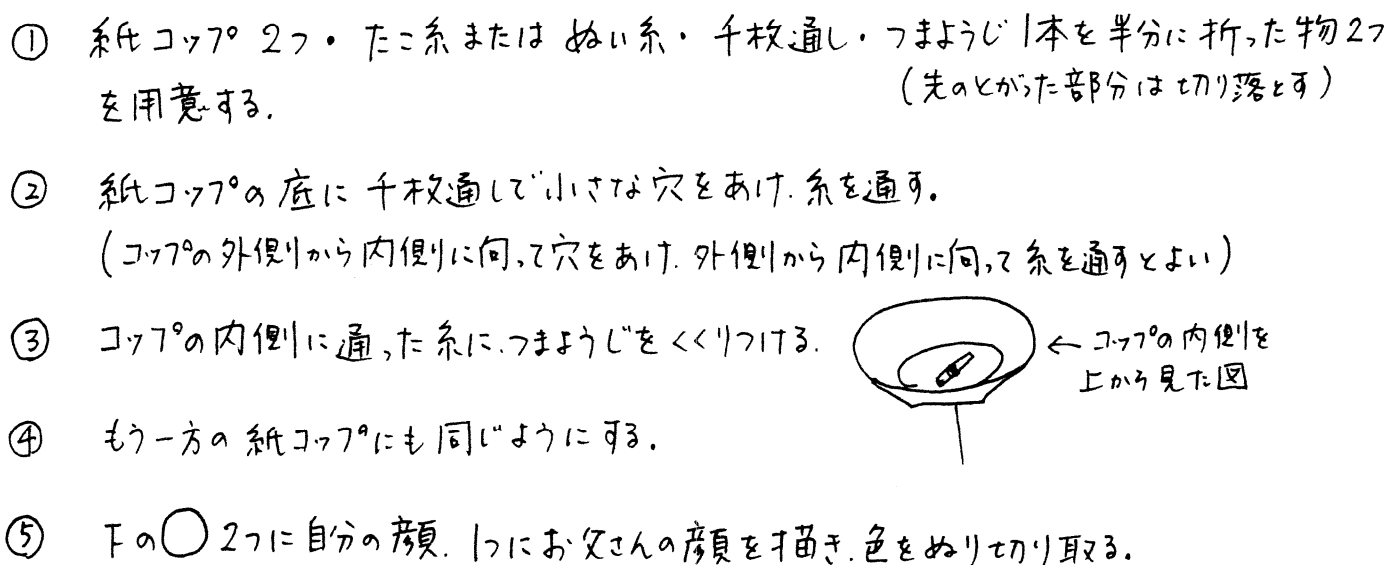 ① 紙コップ 2つ・たこ糸またはぬい糸・千枚通し・つまようじ1本を半分に折った物2つ
(先のとがった部分は切り落とす)
を用意する.
② 紙コップの底に千枚通しで小さな穴をあけ.糸を通す。
(コップの外側から内側に向って穴をあけ.外側から内側に向って糸を通すとよい)
③ コップの内側に通った糸に.つまようじをくくりつける.
←コップの内側を
上から見た図
④ もう一方の紙コップにも同じようにする.
⑤ 下の○2つに自分の顔.1つにお父さんの顔を描き.色をぬり切り取る.